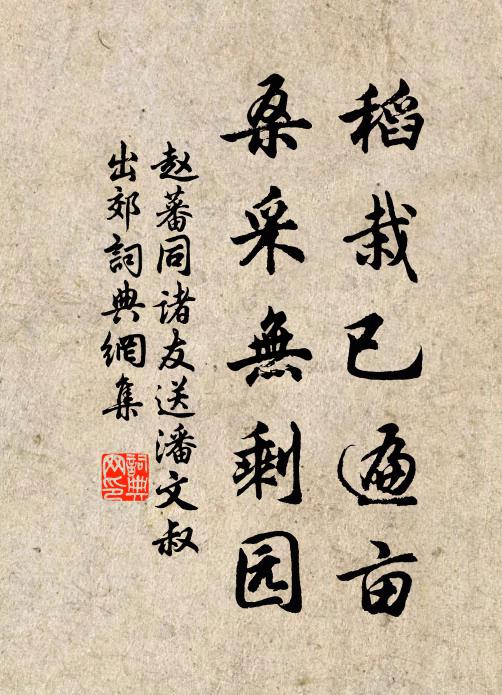 稻栽已遍亩
桑采無剩园
赵蕃同诸友送潘文叔
出郊詞典網集
詞典網印